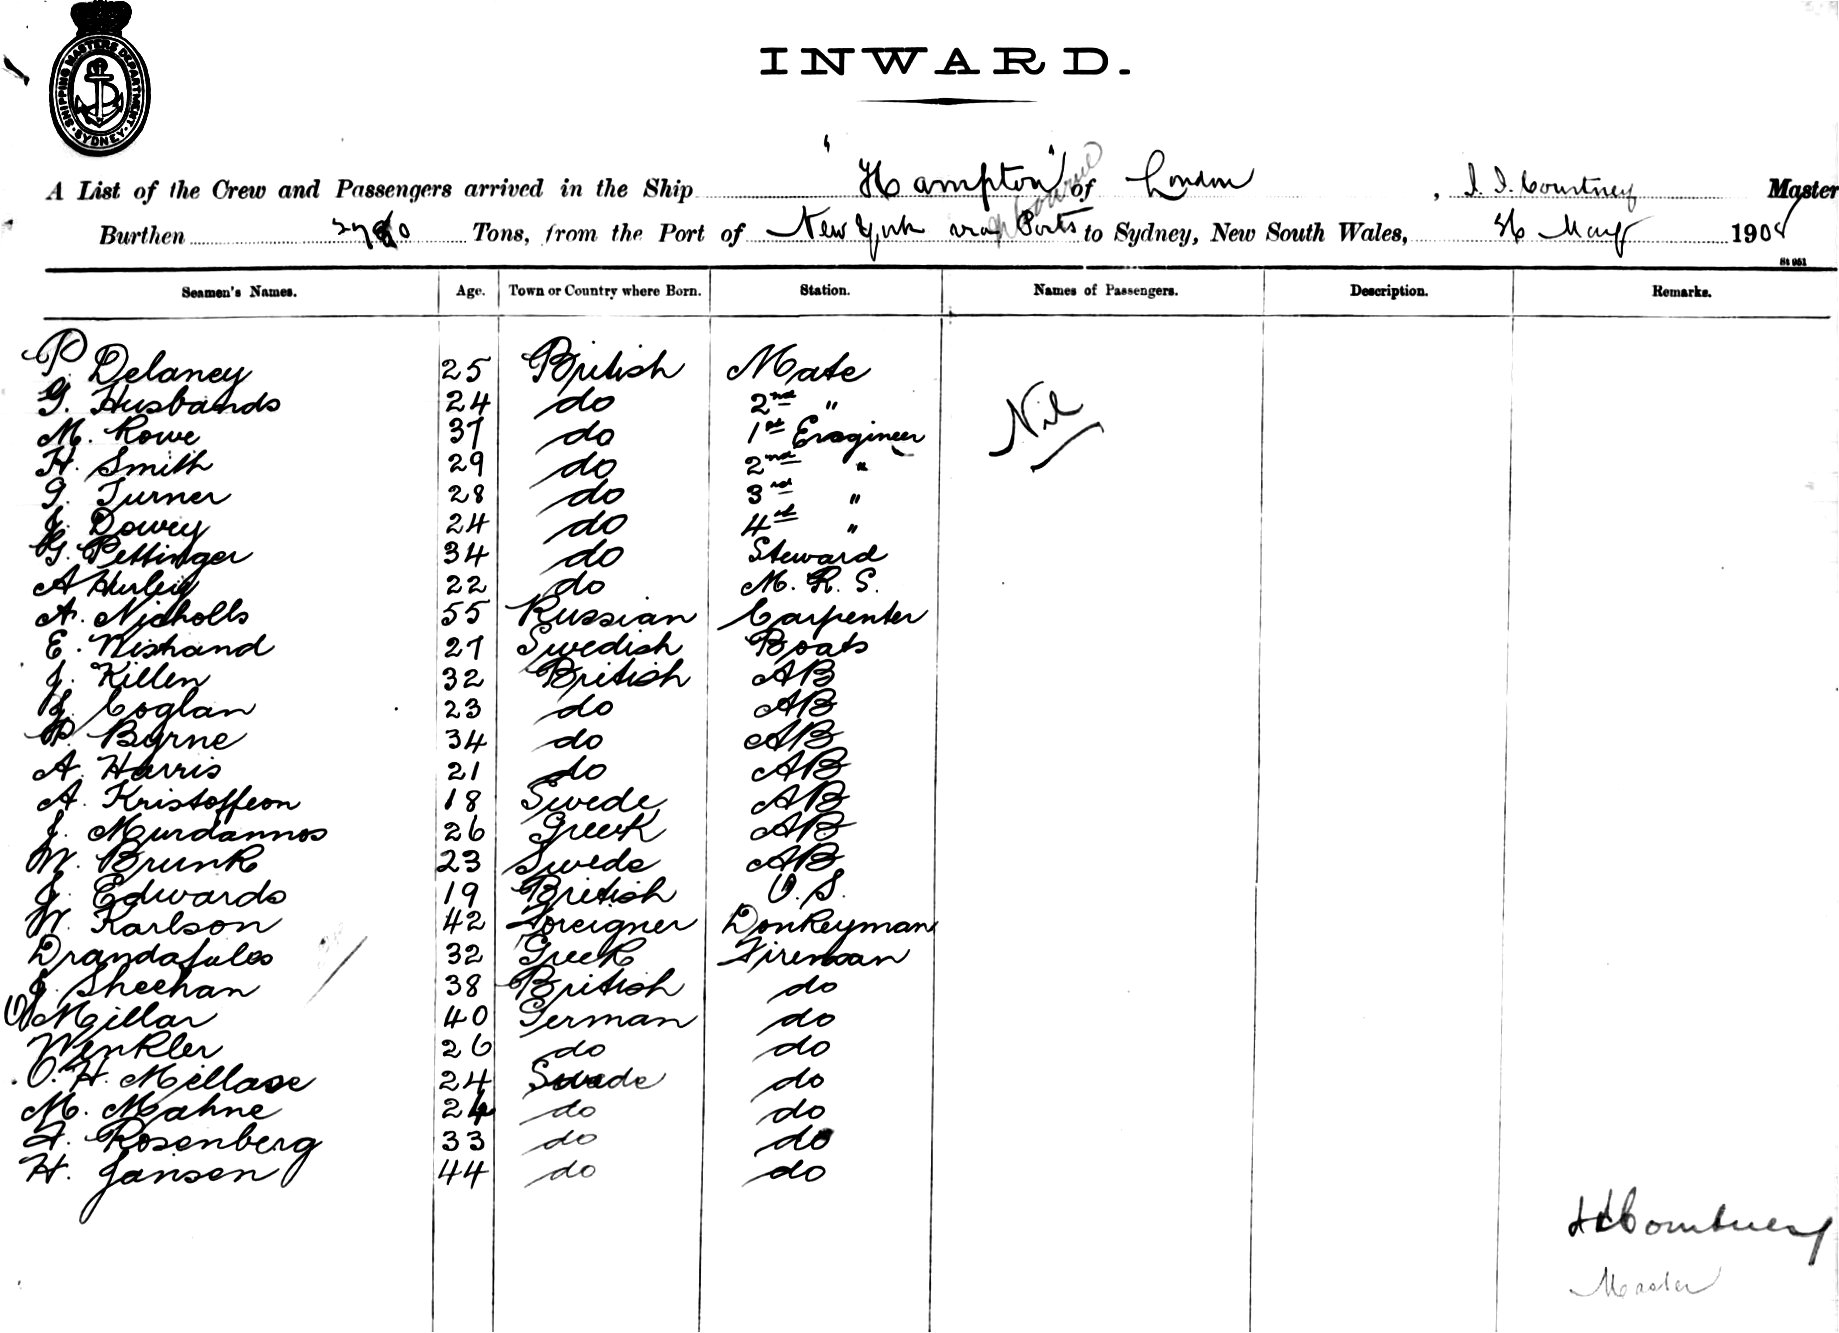 SHIPPING MASTERS DEPARTMENT · SYDNEY ·
INWARD.
A List of the Crew and Passengers arrived in the Ship "Hampton" of London, I. I. Courtney Master
Burthen Tons, from the Port of New York via Ports to Sydney, New South Wales, May 1908
St 951
Seamen's Names. Age. Town or Country where Born. Station. Names of Passengers. Description. Remarks.
P Delaney 25 British Mate
G. Husbands 24 do 2nd "
Nil
M. Rowe 37 do 1st Engineer
H. Smith 29 do 2nd "
G. Turner 28 do 3rd "
J. Dowey 24 do 4th "
G. Pettinger 34 do Steward
A Hurley 22 do M. R. S.
A. Nicholls 55 Russian Carpenter
E. Nishand 27 Swedish Boats
J. Killen 32 British AB
J. Coglan 23 do AB
P. Byrne 34 do AB
A. Harris 21 do AB
A. Kristoffeon 18 Swede AB
J. Murdannos 26 Greek AB
W. Brunk 23 Swede AB
J. Edwards 19 British O. S.
W. Karlson 42 Foreigner Donkeyman
Drandafulos 32 Greek Fireman
J. Sheehan 38 British do
O Millar 40 German do
Winkler 26 do do
O. H. Millase 24 Swede do
M. Mahne 24 do do
F. Rosenberg 33 do do
H. Jansen 44 do do
Courtney
Master